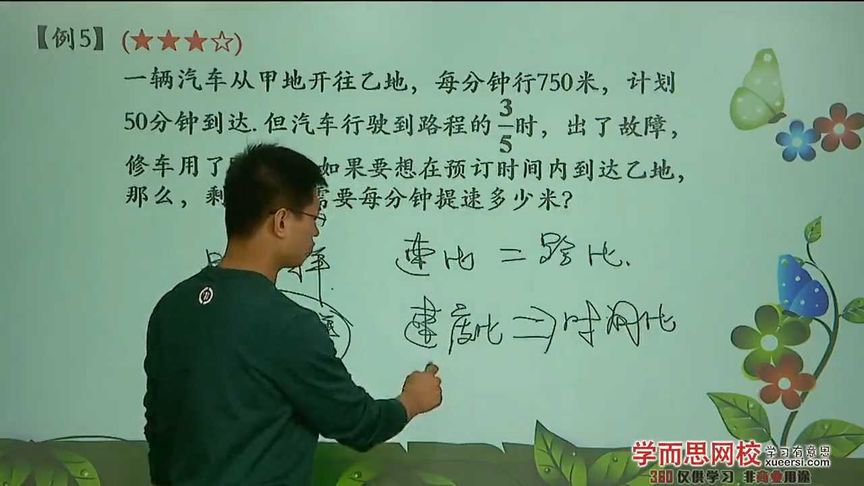 【例5】(★★★☆)
一辆汽车从甲地开往乙地，每分钟行750米，计划
50分钟到达.但汽车行驶到路程的3/5时，出了故障，
修车用了 如果要想在预订时间内到达乙地，
那么，剩 需要每分钟提速多少米？
速比 = 路比.
速度比 ⇒ 时间比
学而思网校 学习有意思
xueersi.com
360 仅供学习 非商业用途